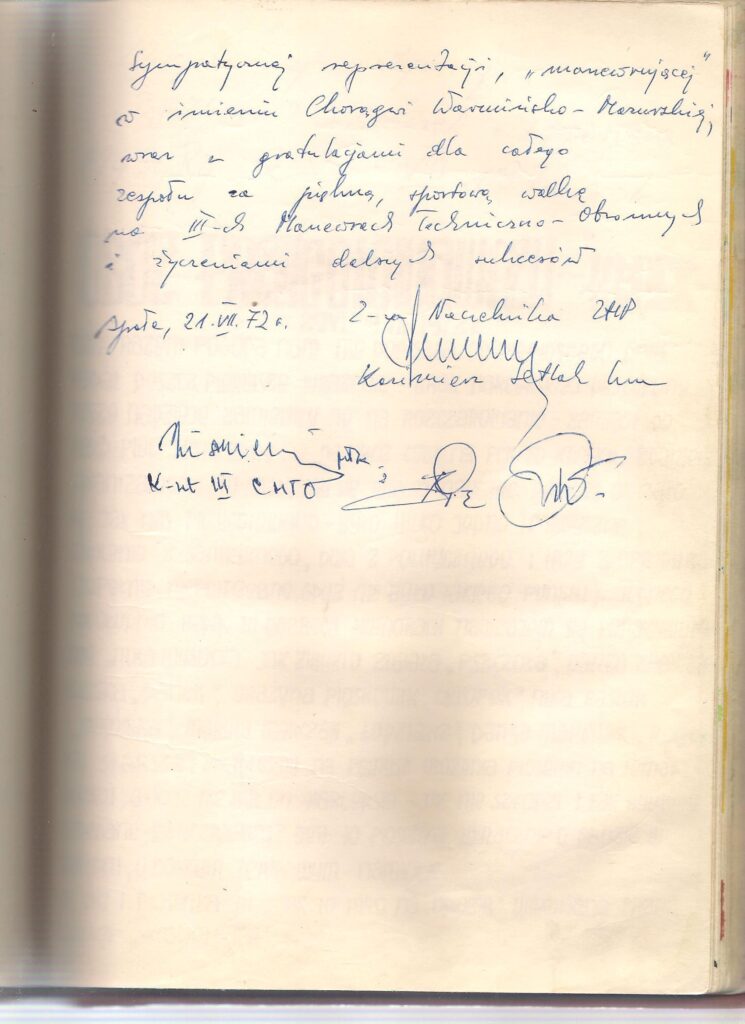 Sympatycznej reprezentacji, „manewrującej"
w imieniu Chorągwi Warmińsko-Mazurskiej,
wraz z gratulacjami dla całego
zespołu za piękną, sportową walkę
na III-ch Manewrach Techniczno-Obronnych
i życzeniami dalszych sukcesów
Spała, 21.VII.72 r. Z-ca Naczelnika ZHP
Kazimierz
K-nt III CMTO